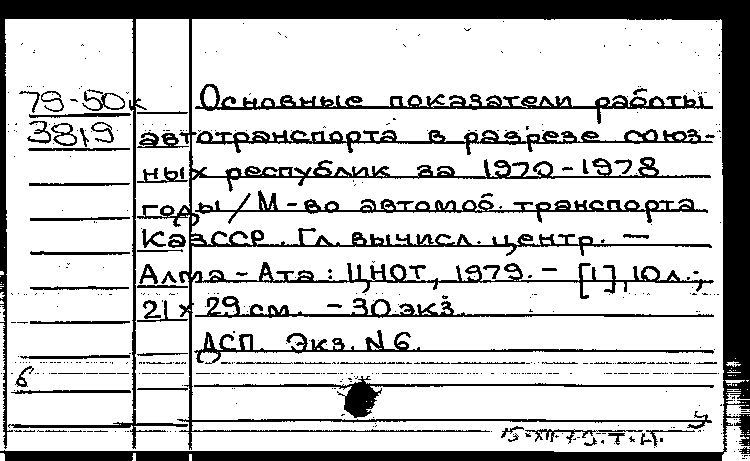 79-50к Основные показатели работы
3819 автотранспорта в разрезе союз-
ных республик за 1970-1978
годы / М-во автомоб. транспорта
КазССР. Гл. вычисл. центр. —
Алма-Ата: ЦНОТ, 1979. — [1], 10 л.;
21 × 29 см. — 30 экз.
ДСП. Экз. N 6.
б